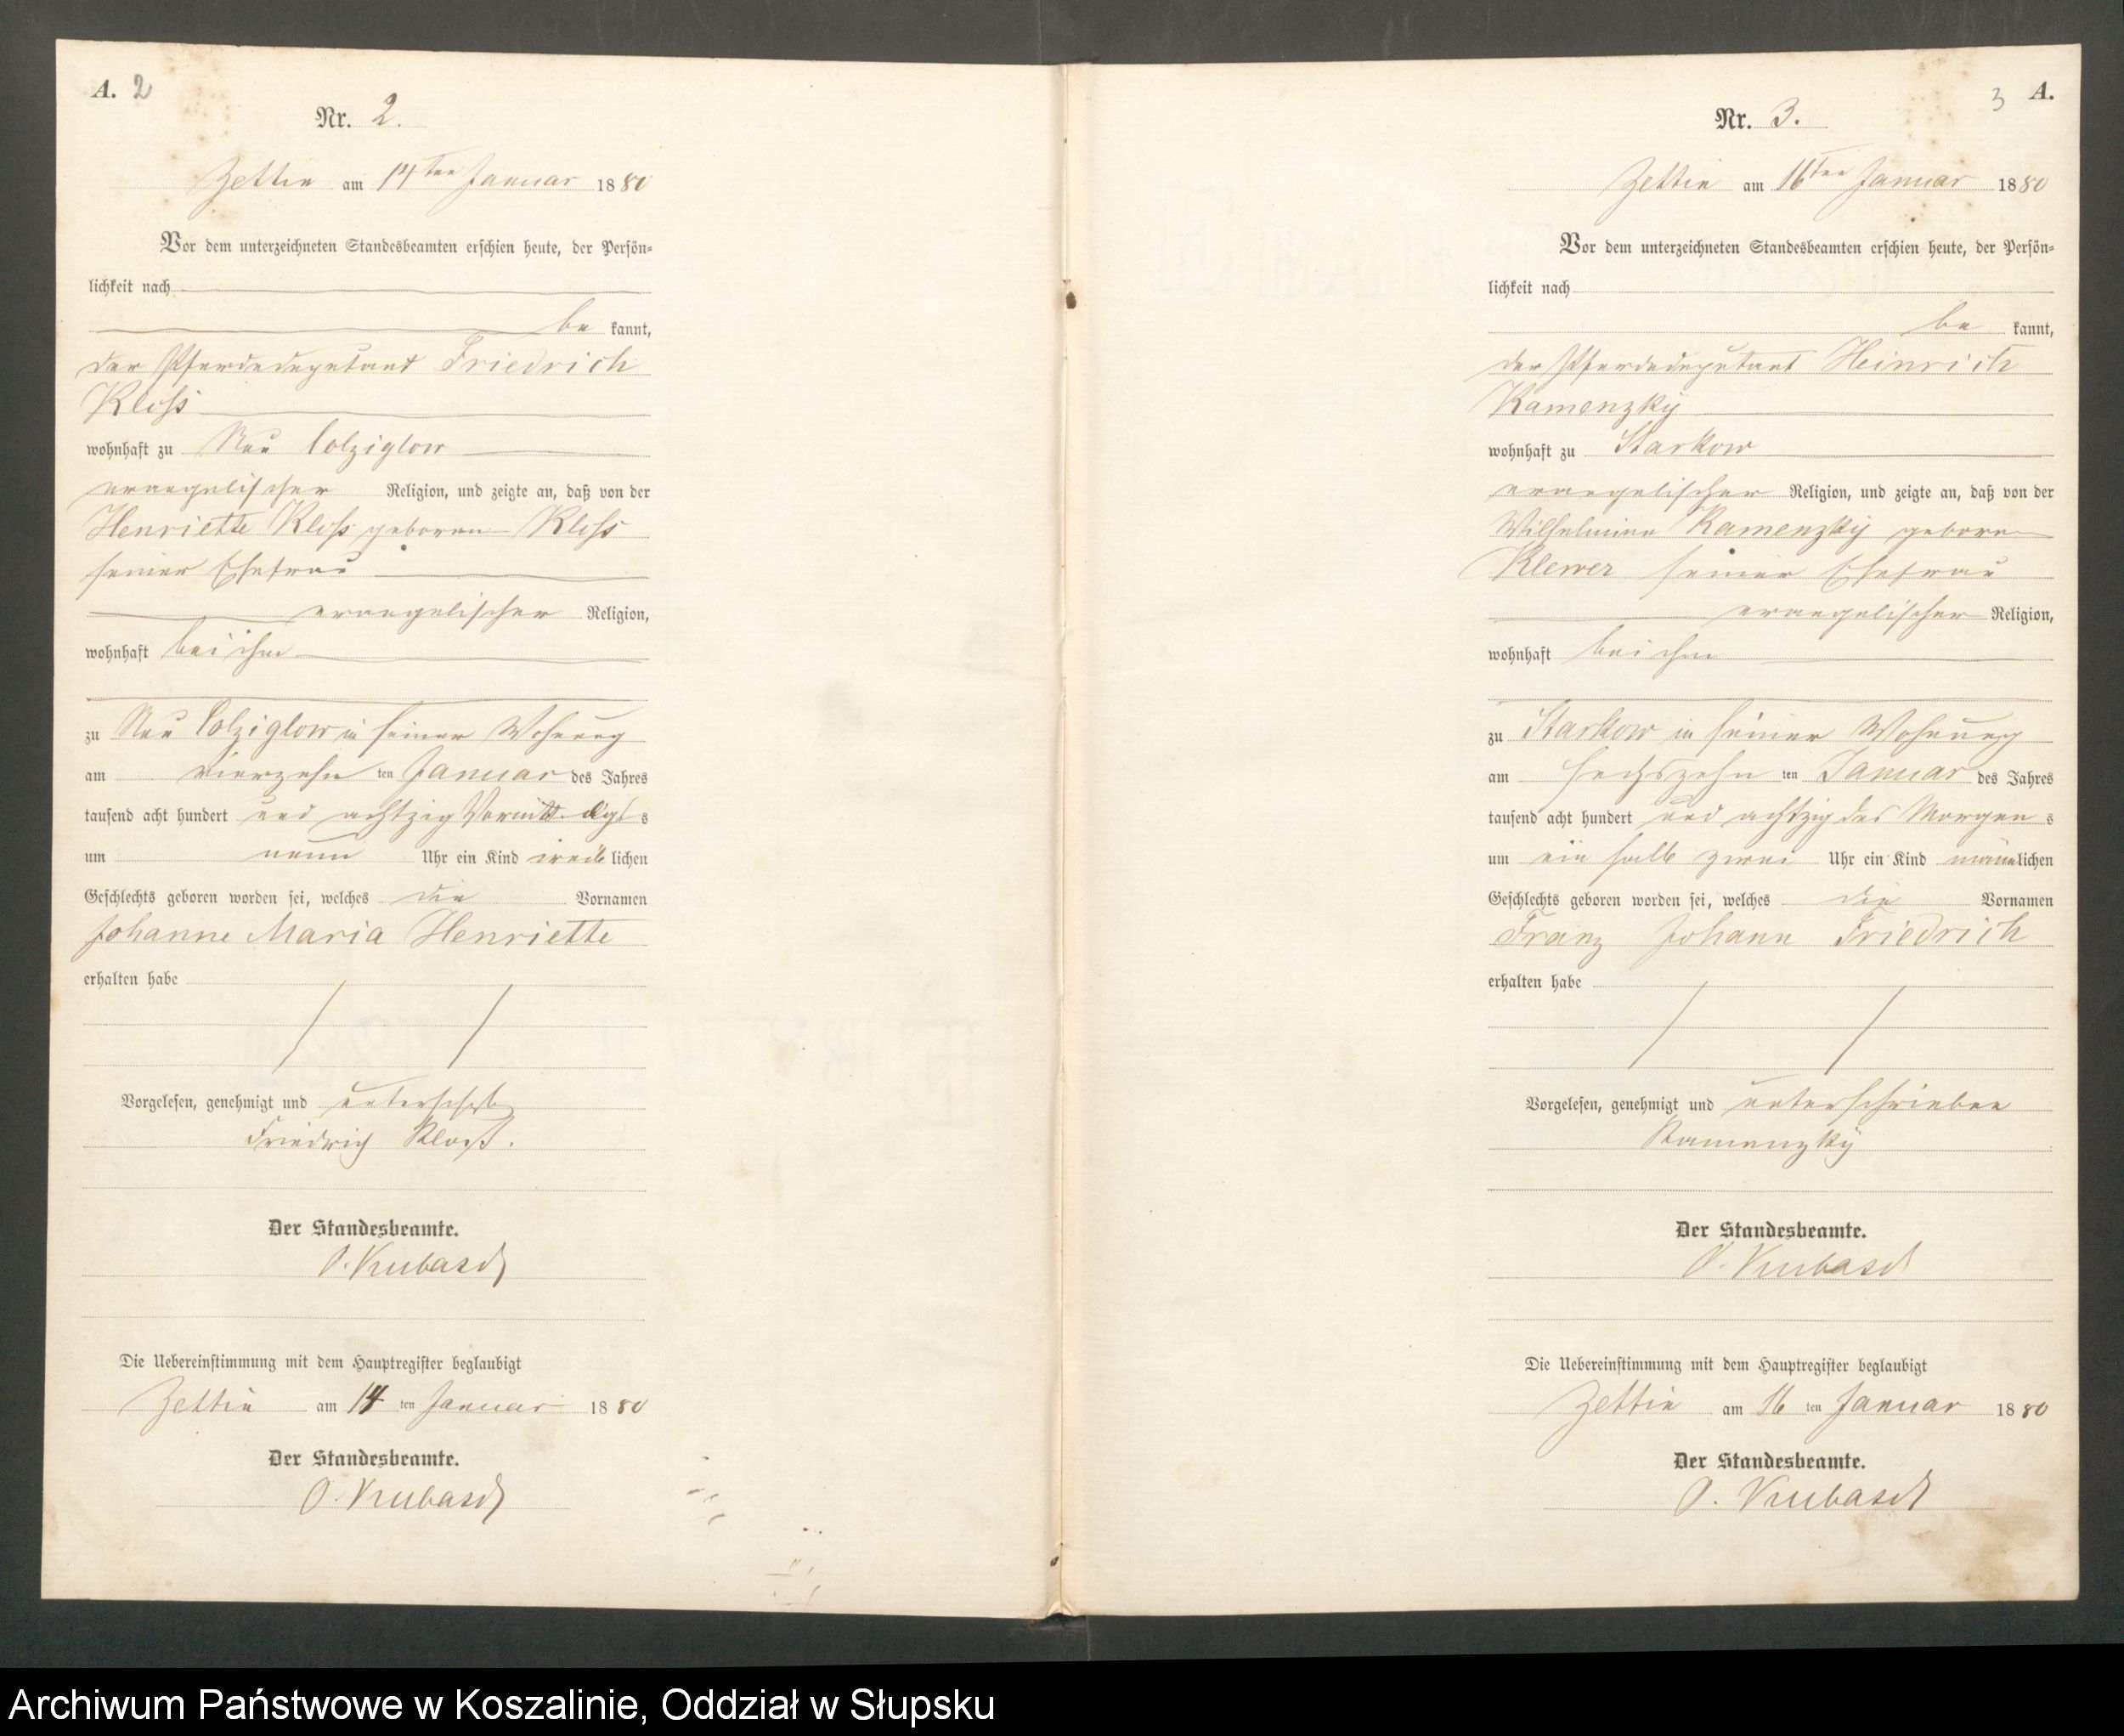 A. 2
Nr. 2.
Zettin am 14ten Januar 1880
Vor dem unterzeichneten Standesbeamten erschien heute, der Persön-
lichkeit nach
be kannt,
der Pferdedeputant Friedrich
Kloss
wohnhaft zu Neu Colziglow
evangelischer Religion, und zeigte an, daß von der
Henriette Kloss geboren Kloss
seiner Ehefrau
evangelischer Religion,
wohnhaft bei ihm
zu Neu Colziglow in seiner Wohnung
am vierzehn ten Januar des Jahres
tausend acht hundert und achtzig Vormittags
um neun Uhr ein Kind weiblichen
Geschlechts geboren worden sei, welches die Vornamen
Johanne Maria Henriette
erhalten habe
Vorgelesen, genehmigt und
Friedrich Kloß.
Der Standesbeamte.
O. Kubasch
Die Uebereinstimmung mit dem Hauptregister beglaubigt
Zettin am 14 ten Januar 1880
Der Standesbeamte.
O. Kubasch
3 A.
Nr. 3.
Zettin am 16ten Januar 1880
Vor dem unterzeichneten Standesbeamten erschien heute, der Persön-
lichkeit nach
be kannt,
der Pferdedeputant Heinrich
Kamenzky
wohnhaft zu Starkow
evangelischer Religion, und zeigte an, daß von der
Wilhelmine Kamenzky geboren
Klewer seiner Ehefrau
evangelischer Religion,
wohnhaft bei ihm
zu Starkow in seiner Wohnung
am sechszehn ten Januar des Jahres
tausend acht hundert und achtzig des Morgens
um ein halb zwei Uhr ein Kind männlichen
Geschlechts geboren worden sei, welches die Vornamen
Franz Johann Friedrich
erhalten habe
Vorgelesen, genehmigt und unterschrieben
Kamenzky
Der Standesbeamte.
O. Kubasch
Die Uebereinstimmung mit dem Hauptregister beglaubigt
Zettin am 16 ten Januar 1880
Der Standesbeamte.
O. Kubasch
Archiwum Państwowe w Koszalinie, Oddział w Słupsku